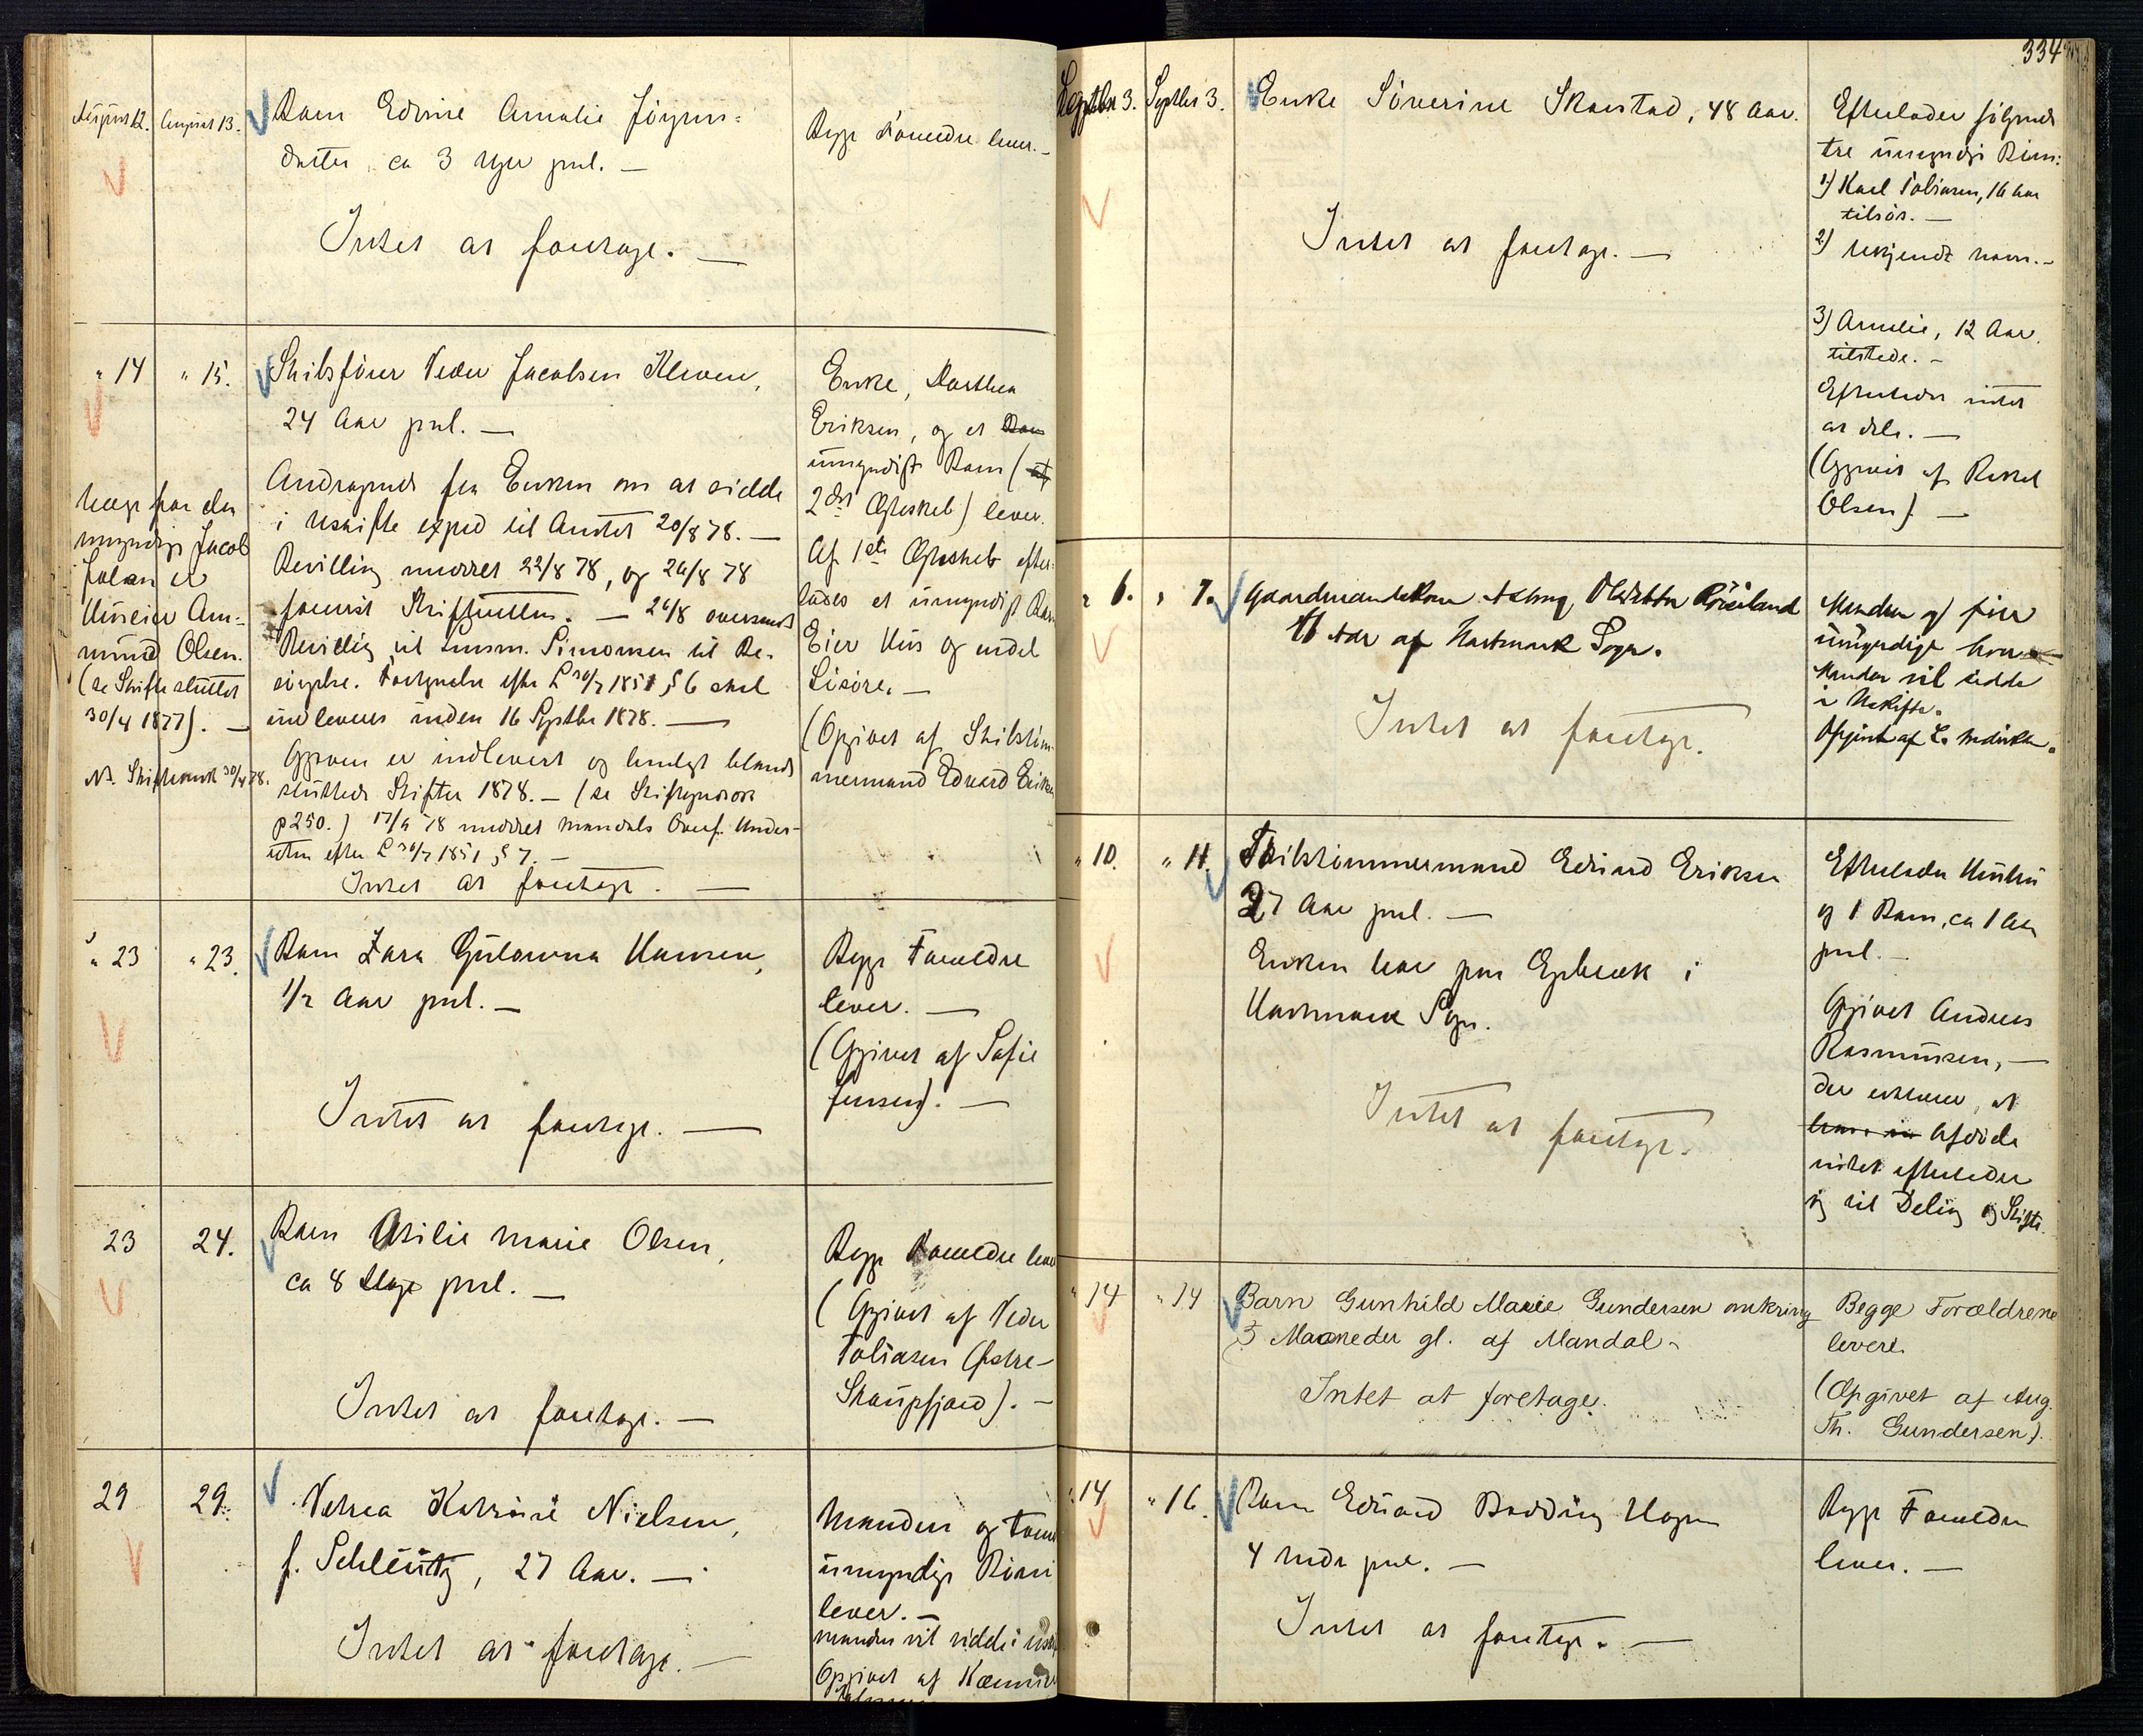 August 12. August 13. Barn Edvine Amalie Jörgens=
datter, ca 3 Uger gml. —
Begge Forældre lever. —
Intet at foretage. —
" 14 " 15. Skibsfører Peder Jacobsen Kleven,
24 Aar gml. —
Andragende fra Enken om at sidde
i Uskifte exped til Amtet 20/8 78. —
Bevilling 22/8 78, og 26/8 78
— 26/8 oversendt
Bevilling til Lensm. Simonsen til Be-
efter L 30/7 1851 § 6 skal
indleveres inden 16 Septbr 1878. —
Opgaven er indleveret og henlagt blandt
sluttede Skifter 1878. — (se
p 250.) Mandals Overf. Under-
efter L 30/7 1851 § 7. —
Intet at foretage. —
Værge for den
umyndige Jacob
er
Huseier Am=
und Olsen.
(se Skifte sluttet
30/4 1877). —
Enke, Dorthea
Eriksen, og et
umyndigt Barn (
2det Ægteskab) lever.
Af 1ste Ægteskab efter=
lades et umyndigt Barn
Eier Hus og endel
Lösöre. —
(Opgivet af Skibstöm-
mermand Edvard Eriksen
" 23 " 23. Barn Zara Gulowna Hansen,
1/2 Aar gml. —
Begge Forældre
lever. —
(Opgivet af Sofie
Jensen). —
Intet at foretage. —
23 24. Barn Otilie Marie Olsen,
ca 8 Dage gml. —
Begge Forældre lever
(Opgivet af Peder
Tobiasen Østre-
Skougsfjord). —
Intet at foretage. —
29 29. Petrea Katrine Nielsen,
f. Schleütz, 27 Aar. —
Manden og
umyndige Börn
lever. —
Manden vil sidde i
Opgivet af
Intet at foretage. —
334
Septbr 3. Septbr 3. Enke Severine Skarstad, 48 Aar.
Intet at foretage. —
Efterlader fölgende
tre umyndige Börn:
1) Karl Tobiasen, 16 Aar
tilsös. —
2) Ukjendt Navn. —
3) Amalie, 12 Aar,
tilstede. —
Efterlader intet
at dele. —
(Opgivet af Rakel
Olsen). —
" 6. " 7. Gaardmandskone Aslaug
Aar af Hartmark Sogn.
Intet at foretage.
Manden og fire
umyndige
Manden vil sidde
i Uskifte.
Opgivet af L.
" 10. " 11. Skibstömmermand Edvard Eriksen
27 Aar gml. —
Enken bor paa Egebæk i
Hartmark Sogn.
Intet at foretage.
Efterlader Hustru
og 1 Barn, ca 1 Aar
gml. —
Opgivet Andreas
Rasmussen, —
der erklærer, at
Afdöde
intet efterlader
sig til Deling og Skifte.
" 14 " 14 Barn Gunhild Marie Gundersen omkring
3 Maaneder gl. af Mandal.
Intet at foretage.
Begge Forældrene
levere.
(Opgivet af Aug.
Th. Gundersen).
" 14 " 16. Barn Edvard Bodding Hagen
4 Mdr gml. —
Intet at foretage. —
Begge Forældre
lever. —